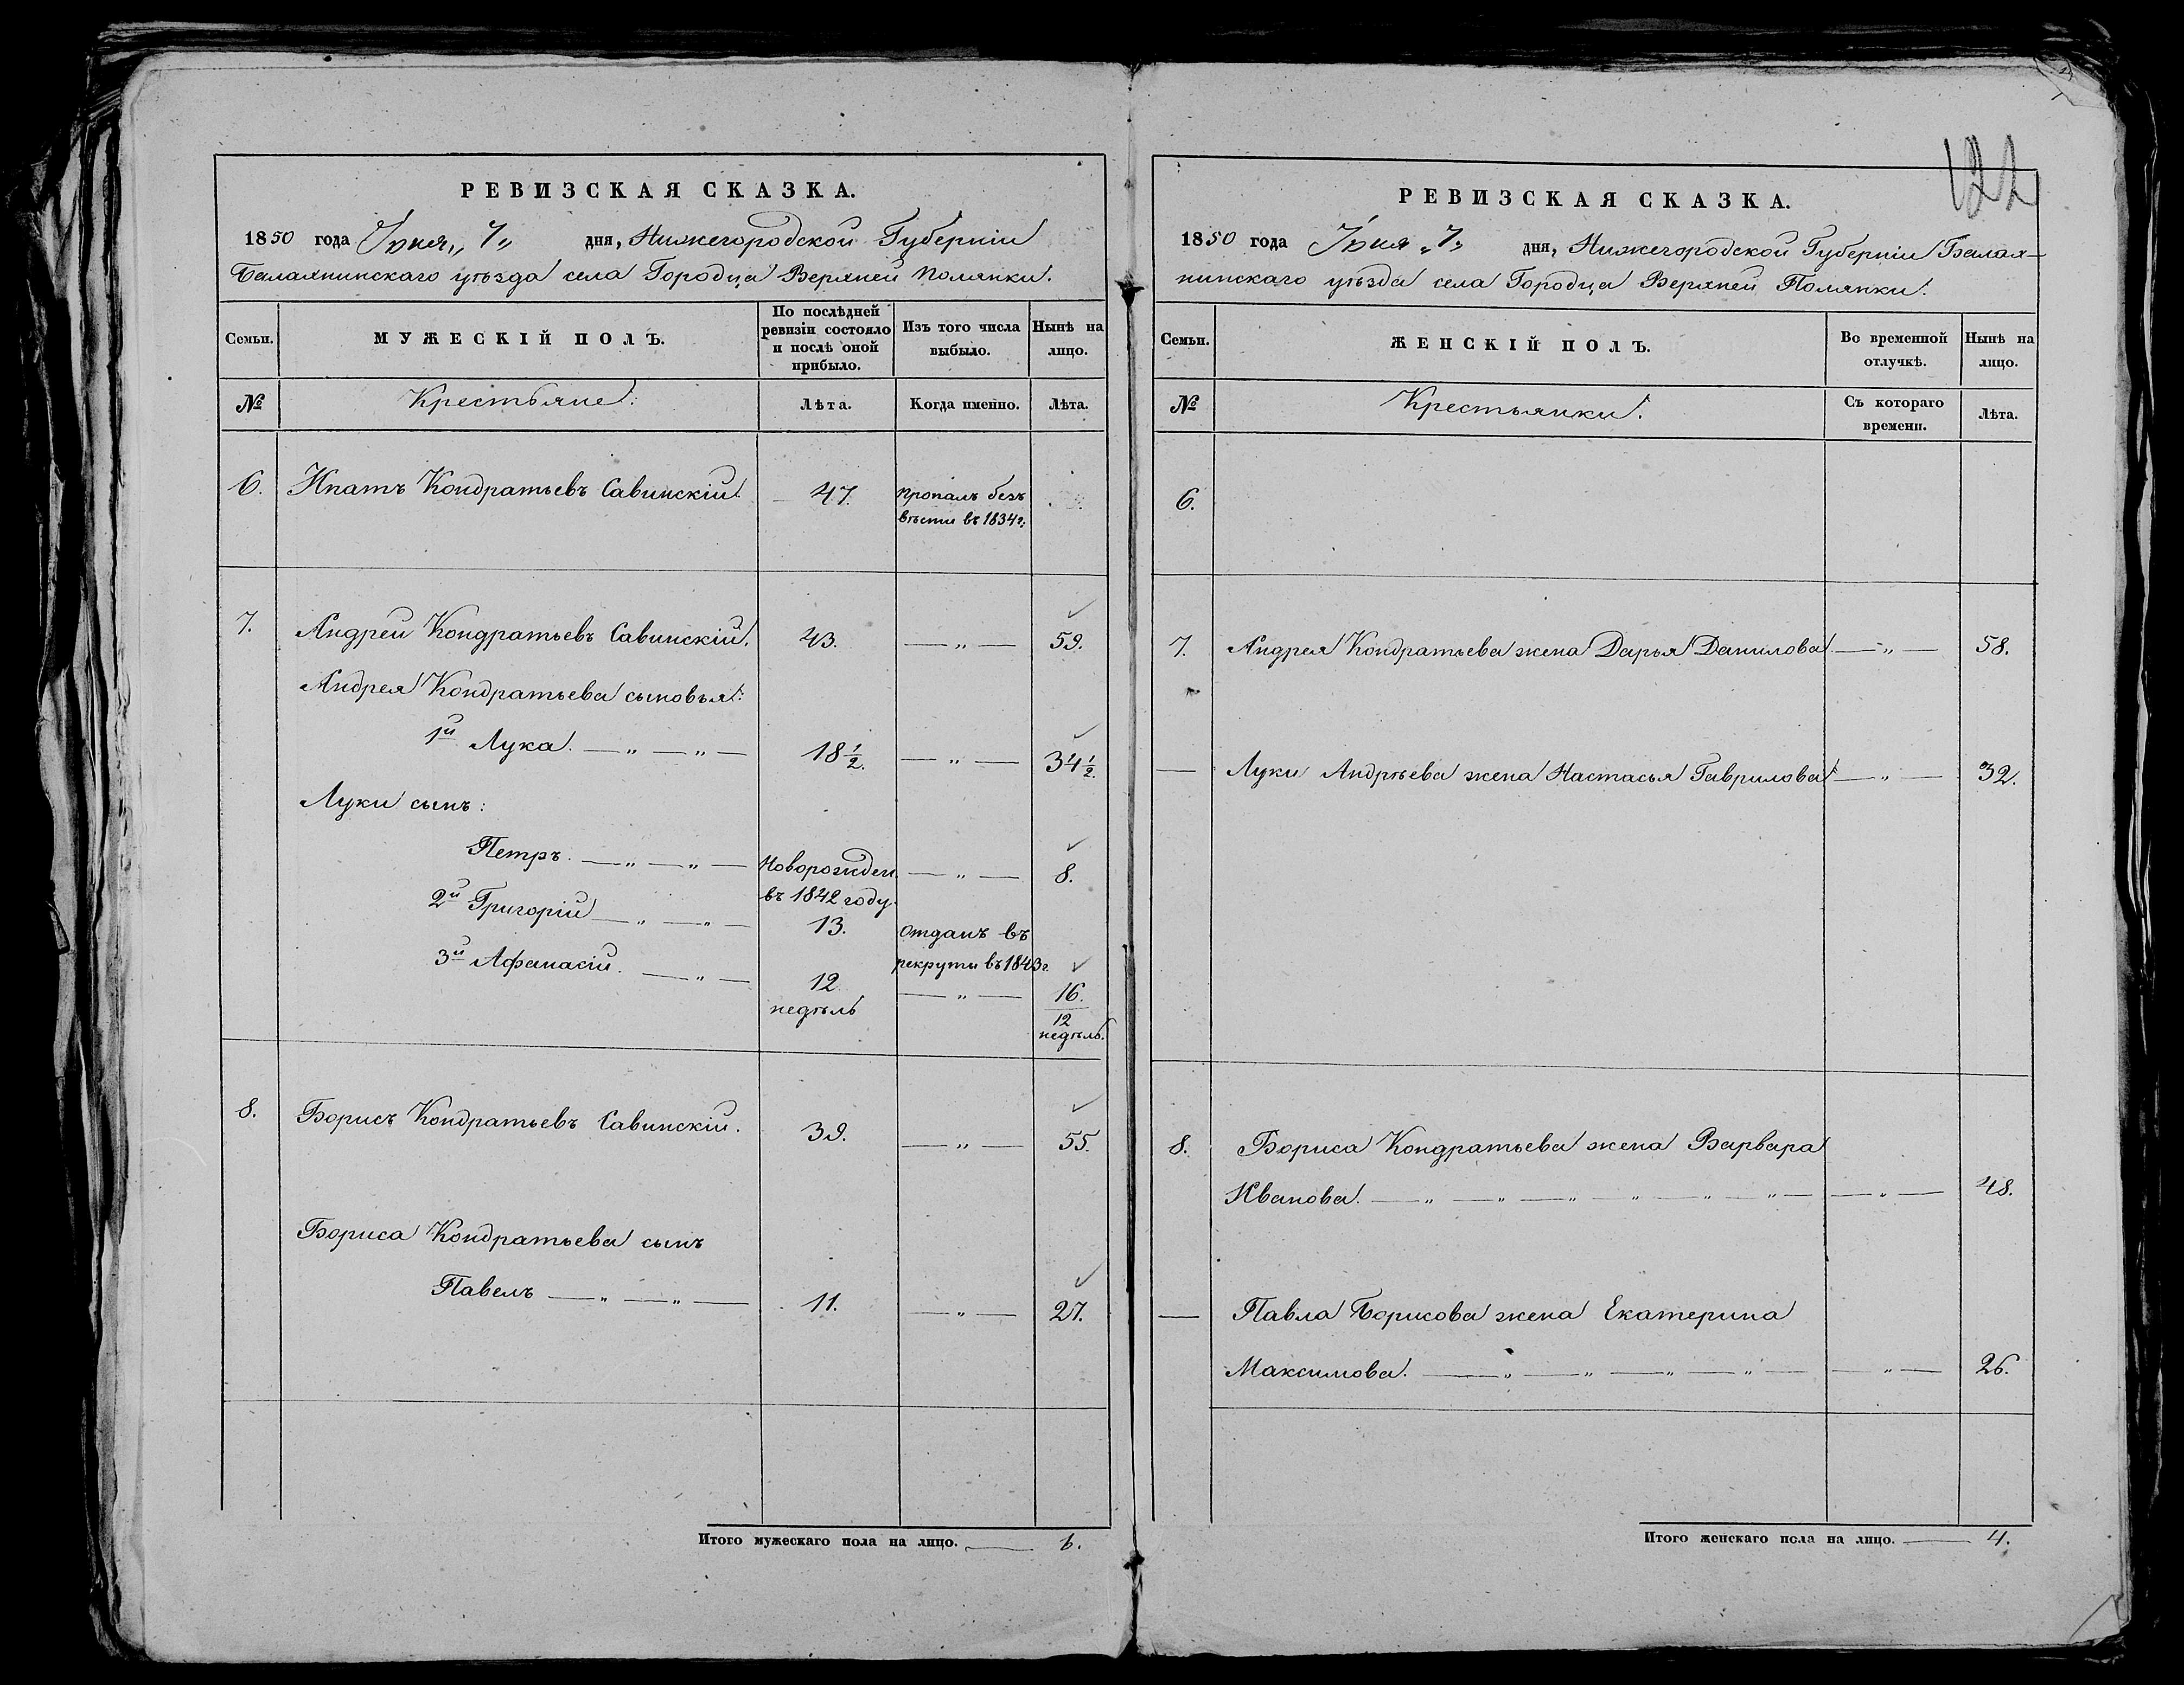 122
РЕВИЗСКАЯ СКАЗКА.
1850 года Іюня „7„ дня, Нижегородской Губерніи
Балахнинскаго уѣзда села Городца Верхней Полянки.
Семьи.
МУЖЕСКІЙ ПОЛЪ.
По послѣдней ревизіи состояло и послѣ оной прибыло.
Изъ того числа выбыло.
Нынѣ на лицо.
№
Крестьяне:
Лѣта.
Когда именно.
Лѣта.
6. Ипатъ Кондратьевъ Савинскій. 47. пропалъ безъ
вѣсти въ 1834г.
7. Андрей Кондратьевъ Савинскій. 43. — „ — 59.
Андрея Кондратьева сыновья:
1й Лука. — „ — „ — 18 1/2. — „ — 34 1/2.
Луки сынъ:
Петръ. — „ — „ — Новорожден. — „ — 8.
въ 1842 году.
2й Григорій — „ — „ — 13. отданъ въ
рекруты въ 1843г.
3й Афанасій. — „ — 12 — „ — 16.
недѣль 12
недѣль.
8. Борисъ Кондратьевъ Савинскій. 39. — „ — 55.
Бориса Кондратьева сынъ
Павелъ — „ — „ — 11. — „ — 27.
Итого мужескаго пола на лицо. — 6.
РЕВИЗСКАЯ СКАЗКА.
1850 года Іюня „7„ дня, Нижегородской Губерніи Балах-
нинскаго уѣзда села Городца Верхней Полянки.
Семьи.
ЖЕНСКІЙ ПОЛЪ.
Во временной отлучкѣ.
Нынѣ на лицо.
№
Крестьянки.
Съ котораго времени.
Лѣта.
6.
7. Андрея Кондратьева жена Дарья Данилова — „ — 58.
— Луки Андрѣева жена Настасья Гаврилова — „ — 32.
8. Бориса Кондратьева жена Варвара
Иванова. — „ — „ — „ — „ — „ — „ — — „ — 48.
— Павла Борисова жена Екатерина
Максимова. — „ — „ — „ — „ — — „ — 26.
Итого женскаго пола на лицо. — 4.